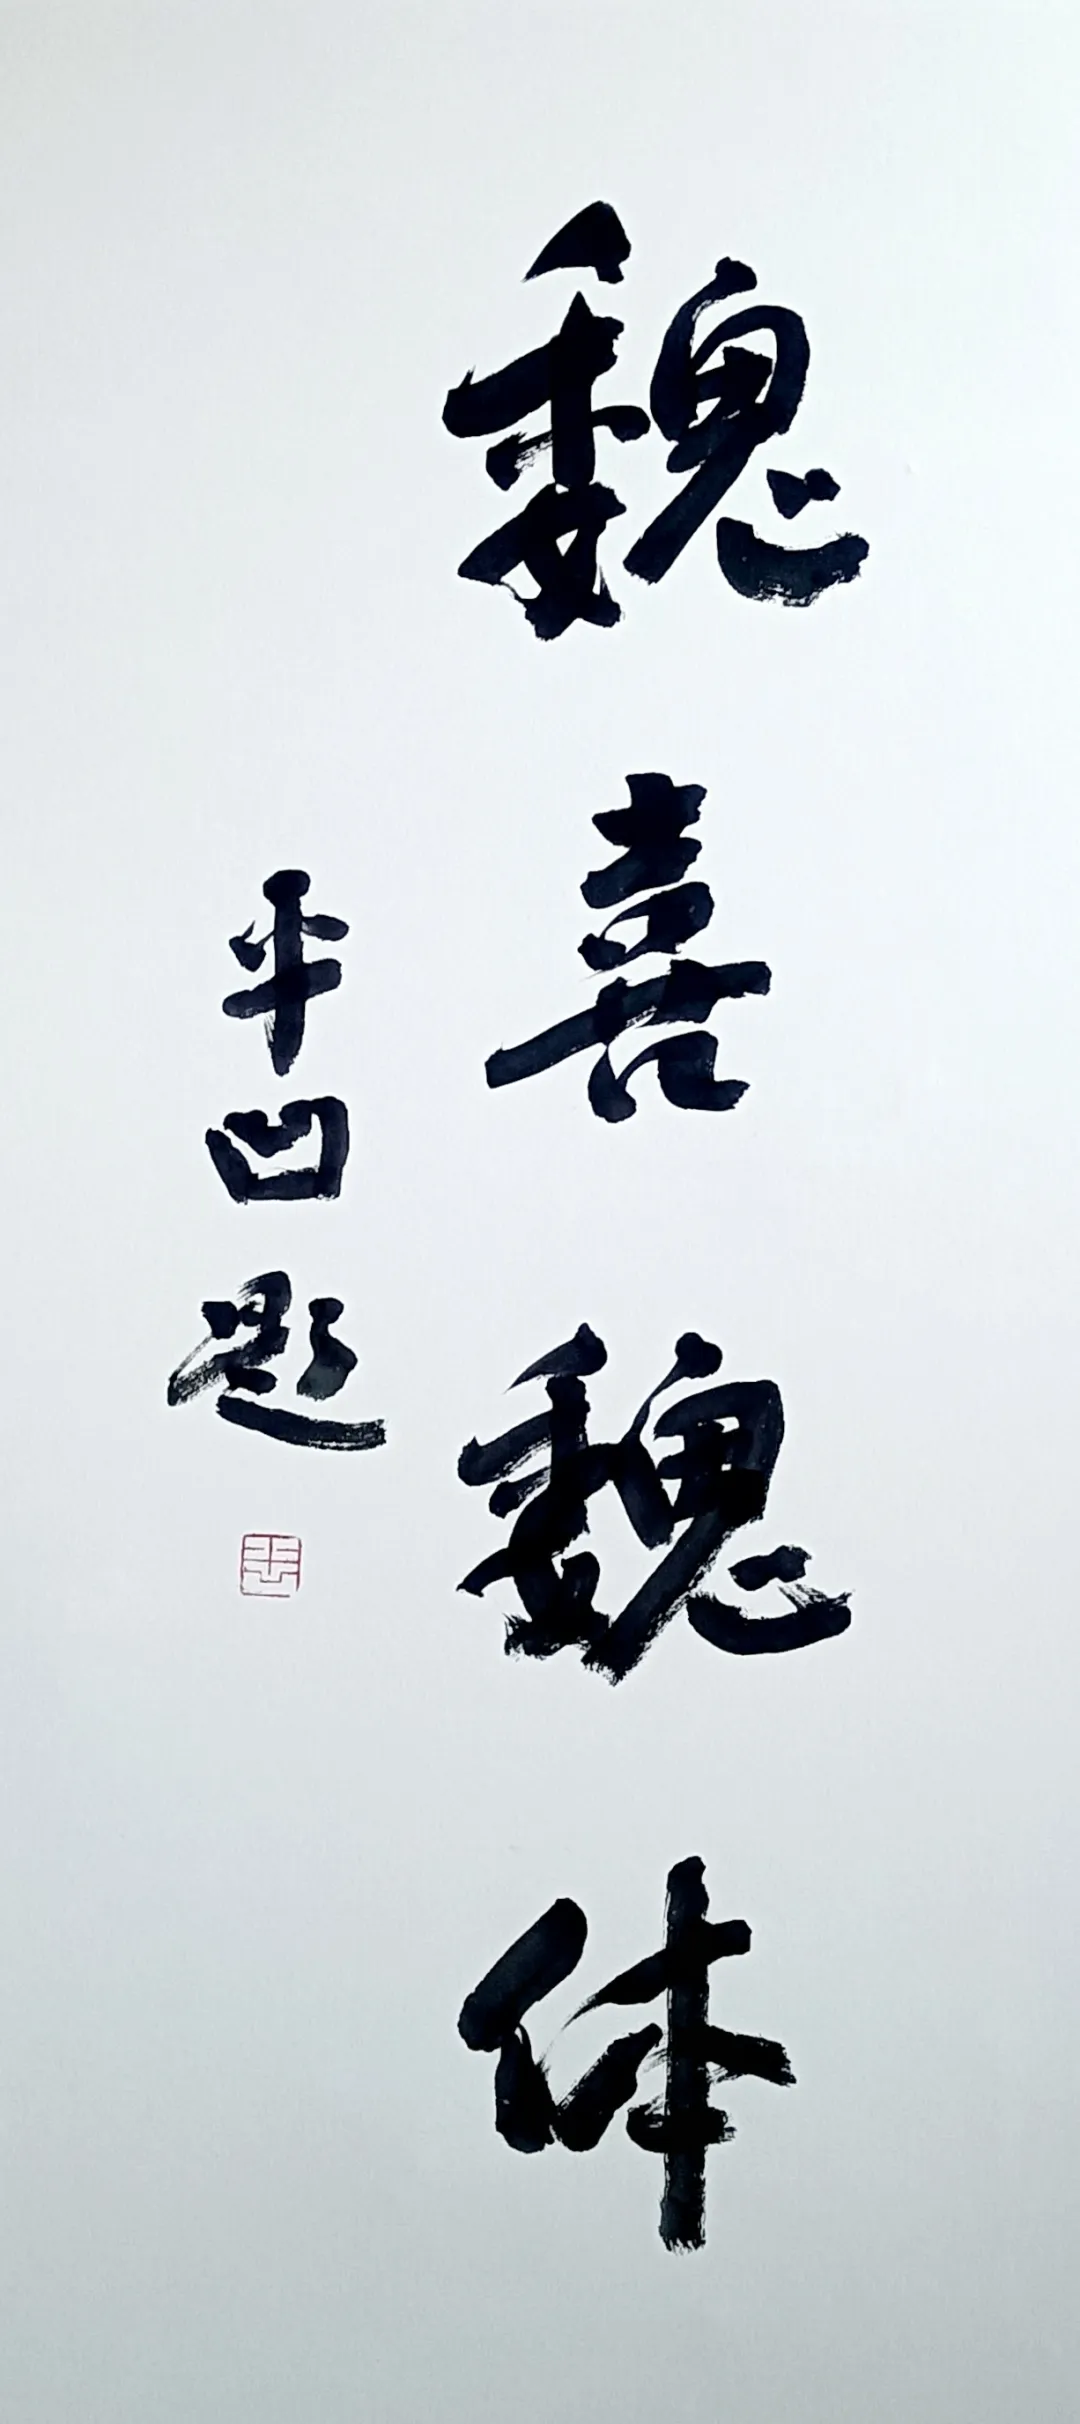 魏喜魏体
平凹题